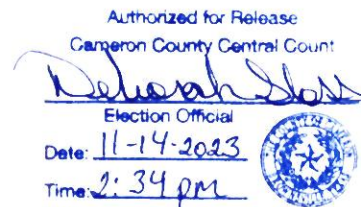 Authorized for Release
Cameron County Central Count
Deborah Gloss
Election Official
Date: 11-14-2023
Time: 2:34 pm